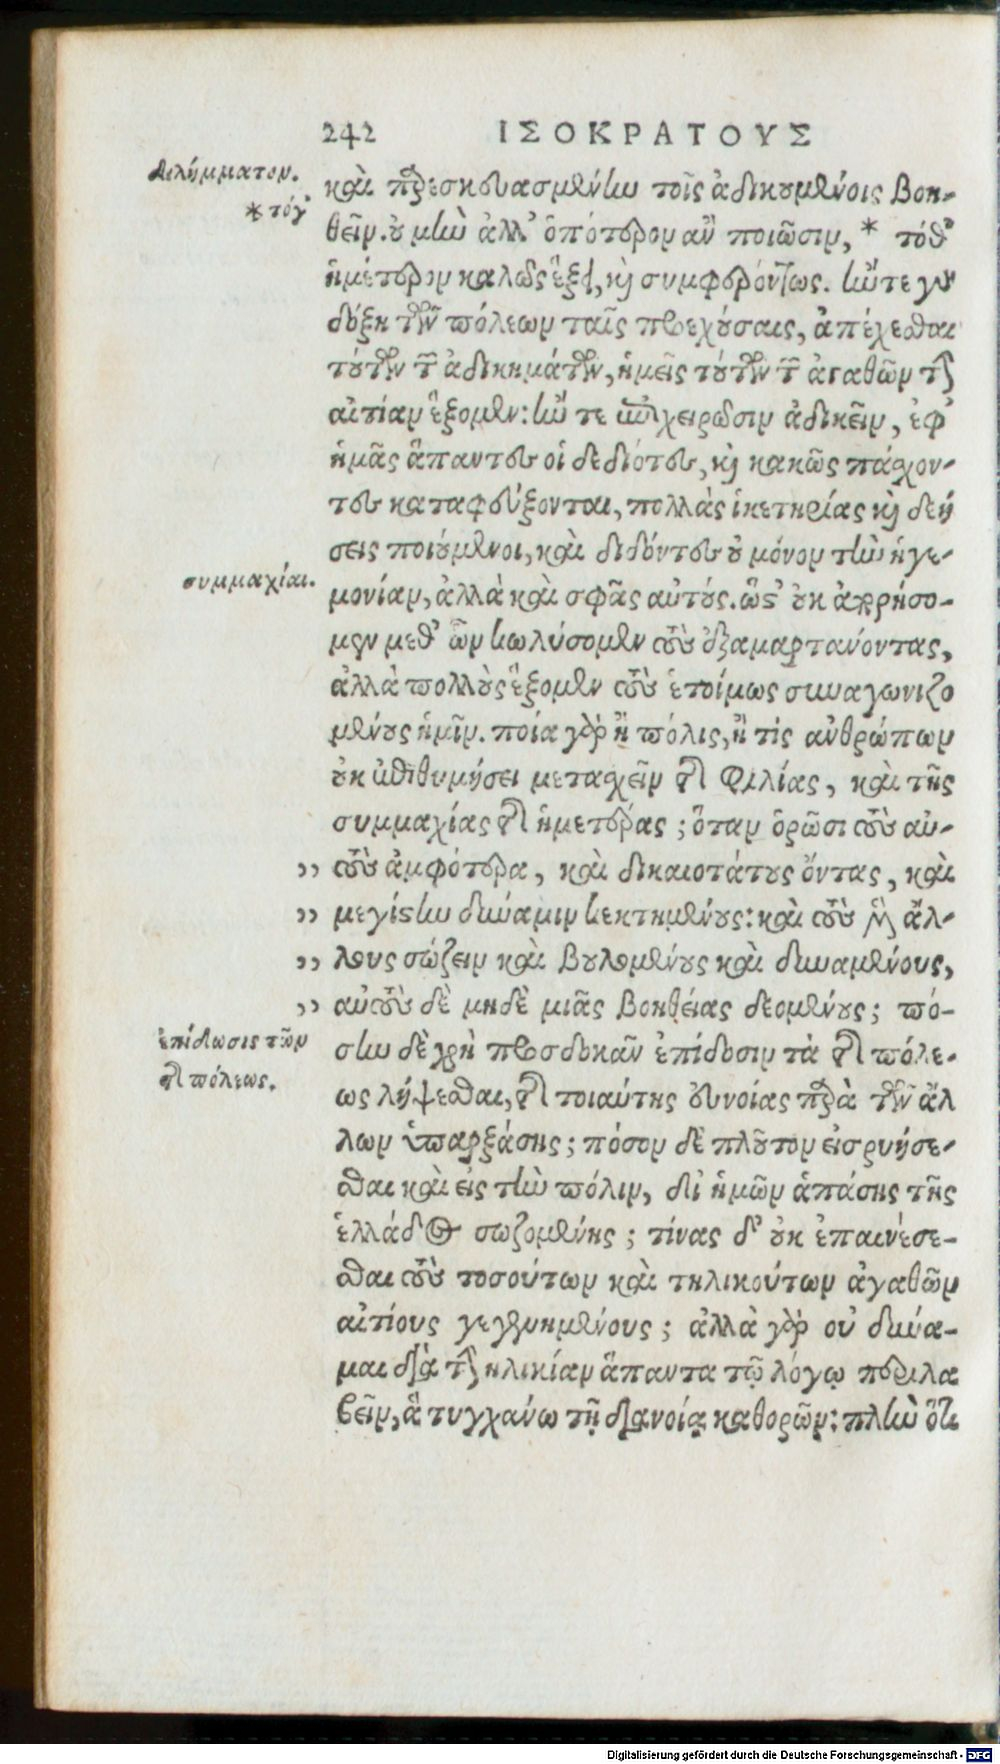 242 ΙΣΟΚΡΑΤΟΥΣ
διλήμματον.
*τόγ'
καὶ παρεσκευασμένην τοῖς ἀδικουμένοις βοη-
θεῖν. οὐ μὴν ἀλλ' ὁπότερον ἂν ποιῶσιν, * τόθ'
ἡμέτερον καλῶς ἕξει, καὶ συμφερόντως. ἤν τε γὰρ
δόξῃ τῶν πόλεων ταῖς προεχούσαις, ἀπέχεσθαι
τούτων τῶν ἀδικημάτων, ἡμεῖς τούτων τῶν ἀγαθῶν τὴν
αἰτίαν ἕξομεν: ἤν τε ἐπιχειρῶσιν ἀδικεῖν, ἐφ'
ἡμᾶς ἅπαντες οἱ δεδιότες, καὶ κακῶς πάσχον-
τες καταφεύξονται, πολλὰς ἱκετηρίας καὶ δεή
σεις ποιούμενοι, καὶ διδόντες οὐ μόνον τὴν ἡγε-
συμμαχίαι.
μονίαν, ἀλλὰ καὶ σφᾶς αὐτούς. ὥστ' οὐκ ἀπορήσο-
μεν μεθ' ὧν κωλύσομεν τοὺς ἐξαμαρτάνοντας,
ἀλλὰ πολλοὺς ἕξομεν τοὺς ἑτοίμως συναγωνιζο
μένους ἡμῖν. ποία γὰρ ἢ πόλις, ἢ τίς ἀνθρώπων
οὐκ ἐπιθυμήσει μετασχεῖν τῆς φιλίας, καὶ τῆς
συμμαχίας τῆς ἡμετέρας; ὅταν ὁρῶσι τοὺς αὐ-
,, τοὺς ἀμφότερα, καὶ δικαιοτάτους ὄντας, καὶ
,, μεγίστην δύναμιν κεκτημένους: καὶ τοὺς μὲν ἄλ-
,, λους σώζειν καὶ βουλομένους καὶ δυναμένους,
,, αὐτοὺς δὲ μηδὲ μιᾶς βοηθείας δεομένους; πό-
ἐπίδωσις τῶν
τῆς πόλεως.
σην δὲ χρὴ προσδοκᾶν ἐπίδοσιν τὰ τῆς πόλε-
ως λήψεσθαι, τῆς τοιαύτης εὐνοίας παρὰ τῶν ἄλ
λων ὑπαρξάσης; πόσον δὲ πλοῦτον εἰσρυήσε-
σθαι καὶ εἰς τὴν πόλιν, δι' ἡμῶν ἁπάσης τῆς
ἑλλάδος σωζομένης; τίνας δ' οὐκ ἐπαινέσε-
σθαι τοὺς τοσούτων καὶ τηλικούτων ἀγαθῶν
αἰτίους γεγενημένους; ἀλλὰ γὰρ οὐ δύνα-
μαι διὰ τὴν ἡλικίαν ἅπαντα τῷ λόγῳ περιλα
βεῖν, ἃ τυγχάνω τῇ διανοίᾳ καθορῶν: πλὴν ὅτι
Digitalisierung gefördert durch die Deutsche Forschungsgemeinschaft - DFG